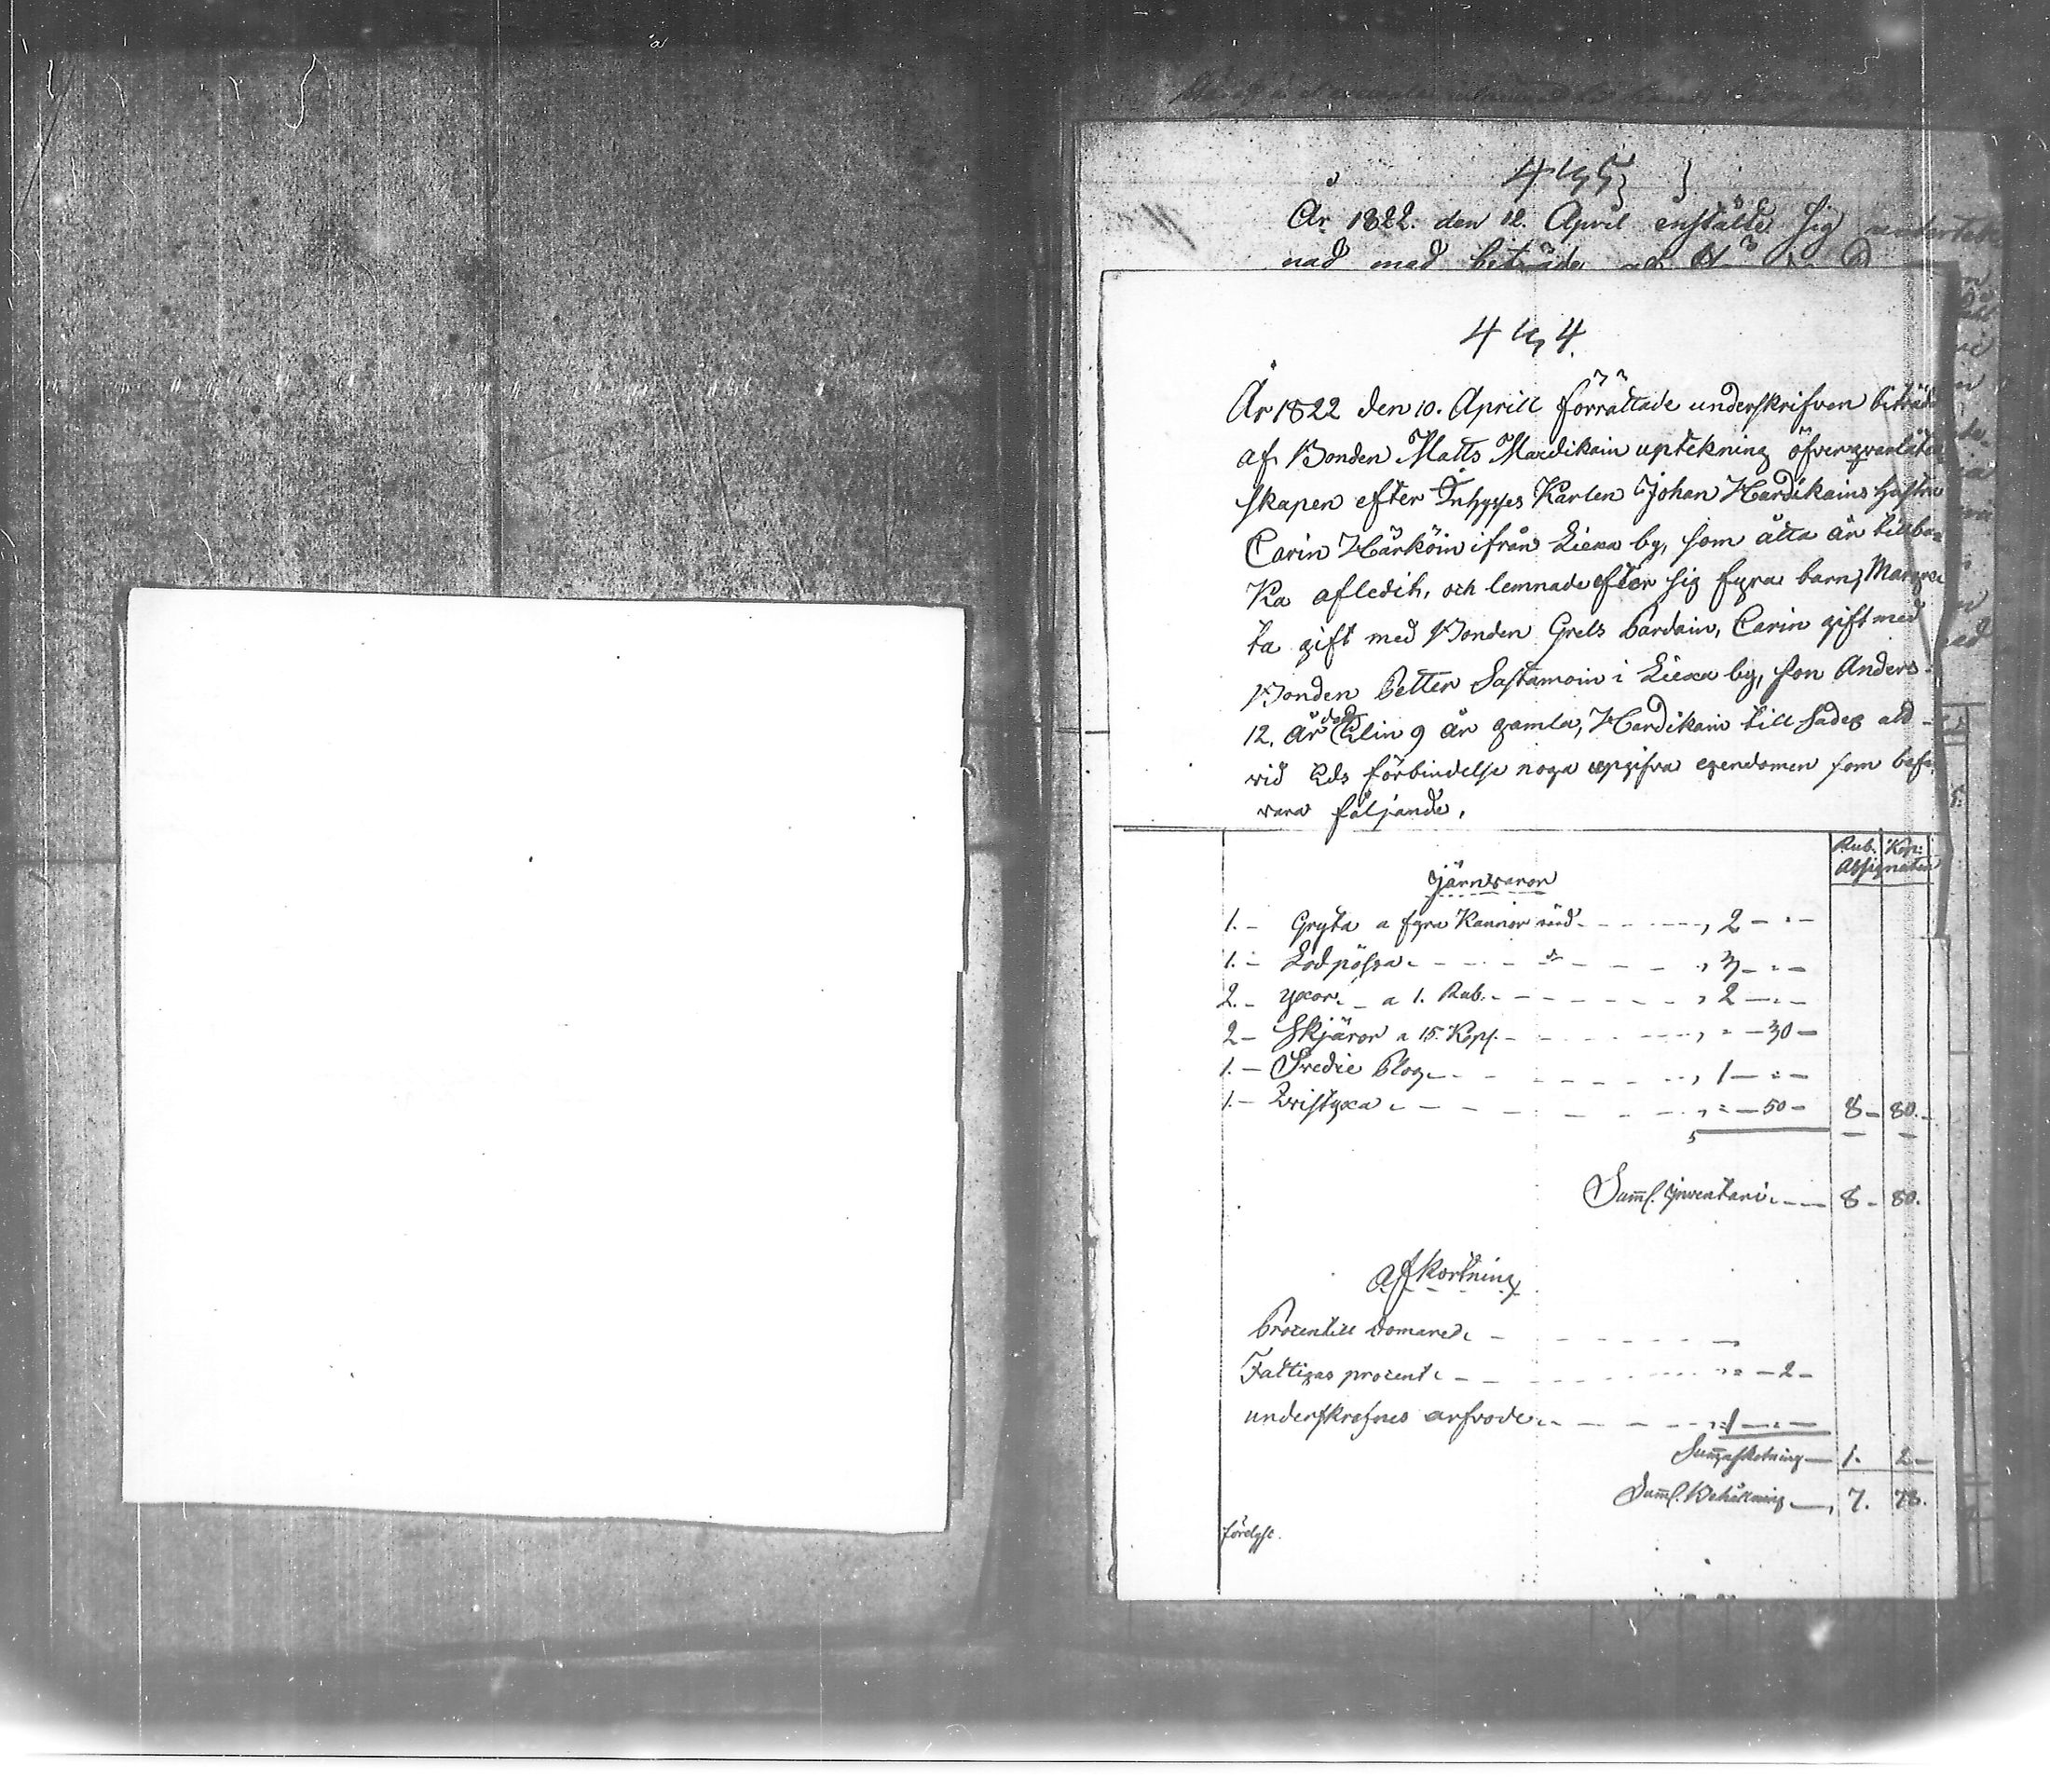 År 1822. den 12. April enstälte sig
nad med beträde
4 4.
År 1822 den 10. Aprill förrättade underskrifven biträd
af Bonden Matts Mardikain uptekning öfver qvarlåten
skapen efter Inhyses Karlen Johan Hardikains hustru
Carin Härköin ifrån Liexa by, som åtta år tillba
ka afledit, och lemnade efter sig fyra barn, Margre
ta gift med Bonden Grels Pardain, Carin gift med
Bonden Petter Sastamoin i Liexa by, son Anders
12. År Elin 9 år gamla, Hardikain till sades att
vid Eds förbindelse noga upgifva egendomen som befa
vara följande.
Rub. Kop:
Assignater
Järnvaror
1. - Gryta a fyra Kannor 2 - " -
1. - Lodpössa 3 - " -
2. - yxor a 1. Rub. 2 - " -
2 - Skjäror a 15 Kop. " - 30 -
1. - Svedie Plog 1 - " -
1. - Qvistyxa " - 50 - 8 - 80.
Summ. Inventari 8 - 80.
Afkortning
Procentill Domared
Fattigas procent " - 2 -
underskrefnes arfvode 1 - " -
Summ afkotning 1. 2 -
Summ. Behållning 7. 78.